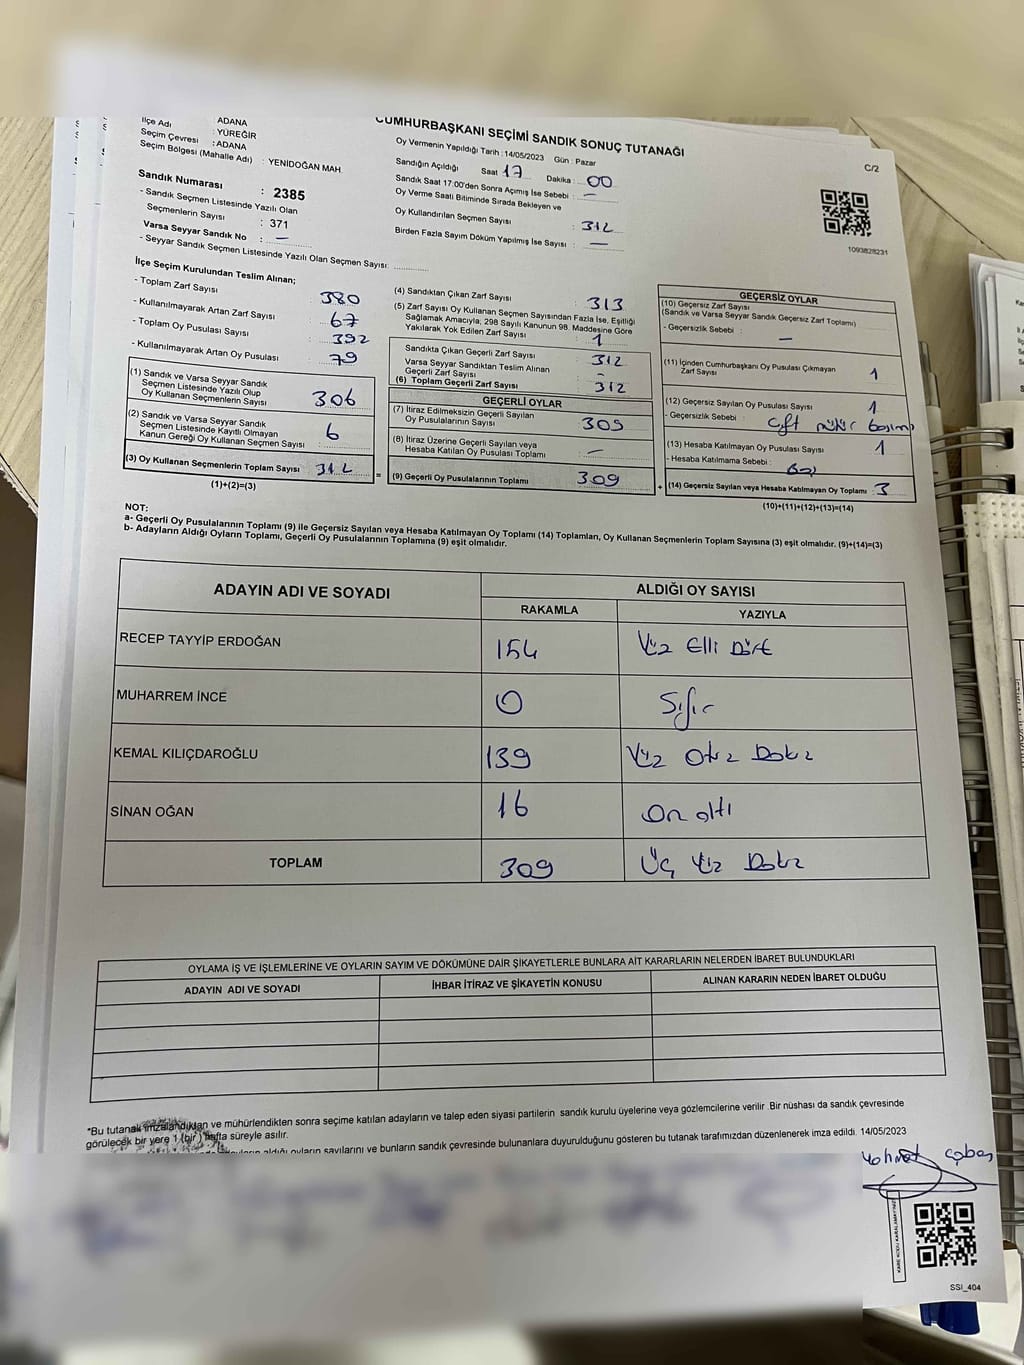 CUMHURBAŞKANI SEÇİMİ SANDIK SONUÇ TUTANAĞI
C/2
: ADANA
İlçe Adı : YÜREĞİR
Seçim Çevresi : ADANA
Seçim Bölgesi (Mahalle Adı) : YENİDOĞAN MAH.
Sandık Numarası : 2385
- Sandık Seçmen Listesinde Yazılı Olan
Seçmenlerin Sayısı : 371
Varsa Seyyar Sandık No : -
- Seyyar Sandık Seçmen Listesinde Yazılı Olan Seçmen Sayısı:
Oy Vermenin Yapıldığı Tarih : 14/05/2023 Gün : Pazar
Sandığın Açıldığı Saat 17 Dakika : 00
Sandık Saat 17:00'den Sonra Açılmış İse Sebebi : -
Oy Verme Saati Bitiminde Sırada Bekleyen ve
Oy Kullandırılan Seçmen Sayısı : 312
Birden Fazla Sayım Döküm Yapılmış İse Sayısı : -
1093828231
İlçe Seçim Kurulundan Teslim Alınan;
- Toplam Zarf Sayısı : 380
- Kullanılmayarak Artan Zarf Sayısı : 67
- Toplam Oy Pusulası Sayısı : 392
- Kullanılmayarak Artan Oy Pusulası : 79
(1) Sandık ve Varsa Seyyar Sandık
Seçmen Listesinde Yazılı Olup
Oy Kullanan Seçmenlerin Sayısı : 306
(2) Sandık ve Varsa Seyyar Sandık
Seçmen Listesinde Kayıtlı Olmayan
Kanun Gereği Oy Kullanan Seçmen Sayısı : 6
(3) Oy Kullanan Seçmenlerin Toplam Sayısı : 312
(1)+(2)=(3)
(4) Sandıktan Çıkan Zarf Sayısı : 313
(5) Zarf Sayısı Oy Kullanan Seçmen Sayısından Fazla İse, Eşitliği
Sağlamak Amacıyla, 298 Sayılı Kanunun 98. Maddesine Göre
Yakılarak Yok Edilen Zarf Sayısı : 1
Sandıkta Çıkan Geçerli Zarf Sayısı : 312
Varsa Seyyar Sandıktan Teslim Alınan
Geçerli Zarf Sayısı : -
(6) Toplam Geçerli Zarf Sayısı : 312
GEÇERLİ OYLAR
(7) İtiraz Edilmeksizin Geçerli Sayılan
Oy Pusulalarının Sayısı : 309
(8) İtiraz Üzerine Geçerli Sayılan veya
Hesaba Katılan Oy Pusulası Toplamı : -
= (9) Geçerli Oy Pusulalarının Toplamı : 309
GEÇERSİZ OYLAR
(10) Geçersiz Zarf Sayısı
(Sandık ve Varsa Seyyar Sandık Geçersiz Zarf Toplamı)
- Geçersizlik Sebebi : -
(11) İçinden Cumhurbaşkanı Oy Pusulası Çıkmayan
Zarf Sayısı : 1
(12) Geçersiz Sayılan Oy Pusulası Sayısı : 1
- Geçersizlik Sebebi : çift mühür basımı
(13) Hesaba Katılmayan Oy Pusulası Sayısı : 1
- Hesaba Katılmama Sebebi :
+ (14) Geçersiz Sayılan veya Hesaba Katılmayan Oy Toplamı : 3
(10)+(11)+(12)+(13)=(14)
NOT:
a- Geçerli Oy Pusulalarının Toplamı (9) ile Geçersiz Sayılan veya Hesaba Katılmayan Oy Toplamı (14) Toplamları, Oy Kullanan Seçmenlerin Toplam Sayısına (3) eşit olmalıdır. (9)+(14)=(3)
b- Adayların Aldığı Oyların Toplamı, Geçerli Oy Pusulalarının Toplamına (9) eşit olmalıdır.
ADAYIN ADI VE SOYADI ALDIĞI OY SAYISI
RAKAMLA YAZIYLA
RECEP TAYYİP ERDOĞAN 154 Yüz Elli Dört
MUHARREM İNCE 0 Sıfır
KEMAL KILIÇDAROĞLU 139 Yüz Otuz Dokuz
SİNAN OĞAN 16 On altı
TOPLAM 309 Üç Yüz Dokuz
OYLAMA İŞ VE İŞLEMLERİNE VE OYLARIN SAYIM VE DÖKÜMÜNE DAİR ŞİKAYETLERLE BUNLARA AİT KARARLARIN NELERDEN İBARET BULUNDUKLARI
ADAYIN ADI VE SOYADI İHBAR İTİRAZ VE ŞİKAYETİN KONUSU ALINAN KARARIN NEDEN İBARET OLDUĞU
*Bu tutanak imzalandıktan ve mühürlendikten sonra seçime katılan adayların ve talep eden siyasi partilerin sandık kurulu üyelerine veya gözlemcilerine verilir. Bir nüshası da sandık çevresinde
görülecek bir yere 1 (bir) hafta süreyle asılır.
aldığı oyların sayılarını ve bunların sandık çevresinde bulunanlara duyurulduğunu gösteren bu tutanak tarafımızdan düzenlenerek imza edildi. 14/05/2023
SSI_404